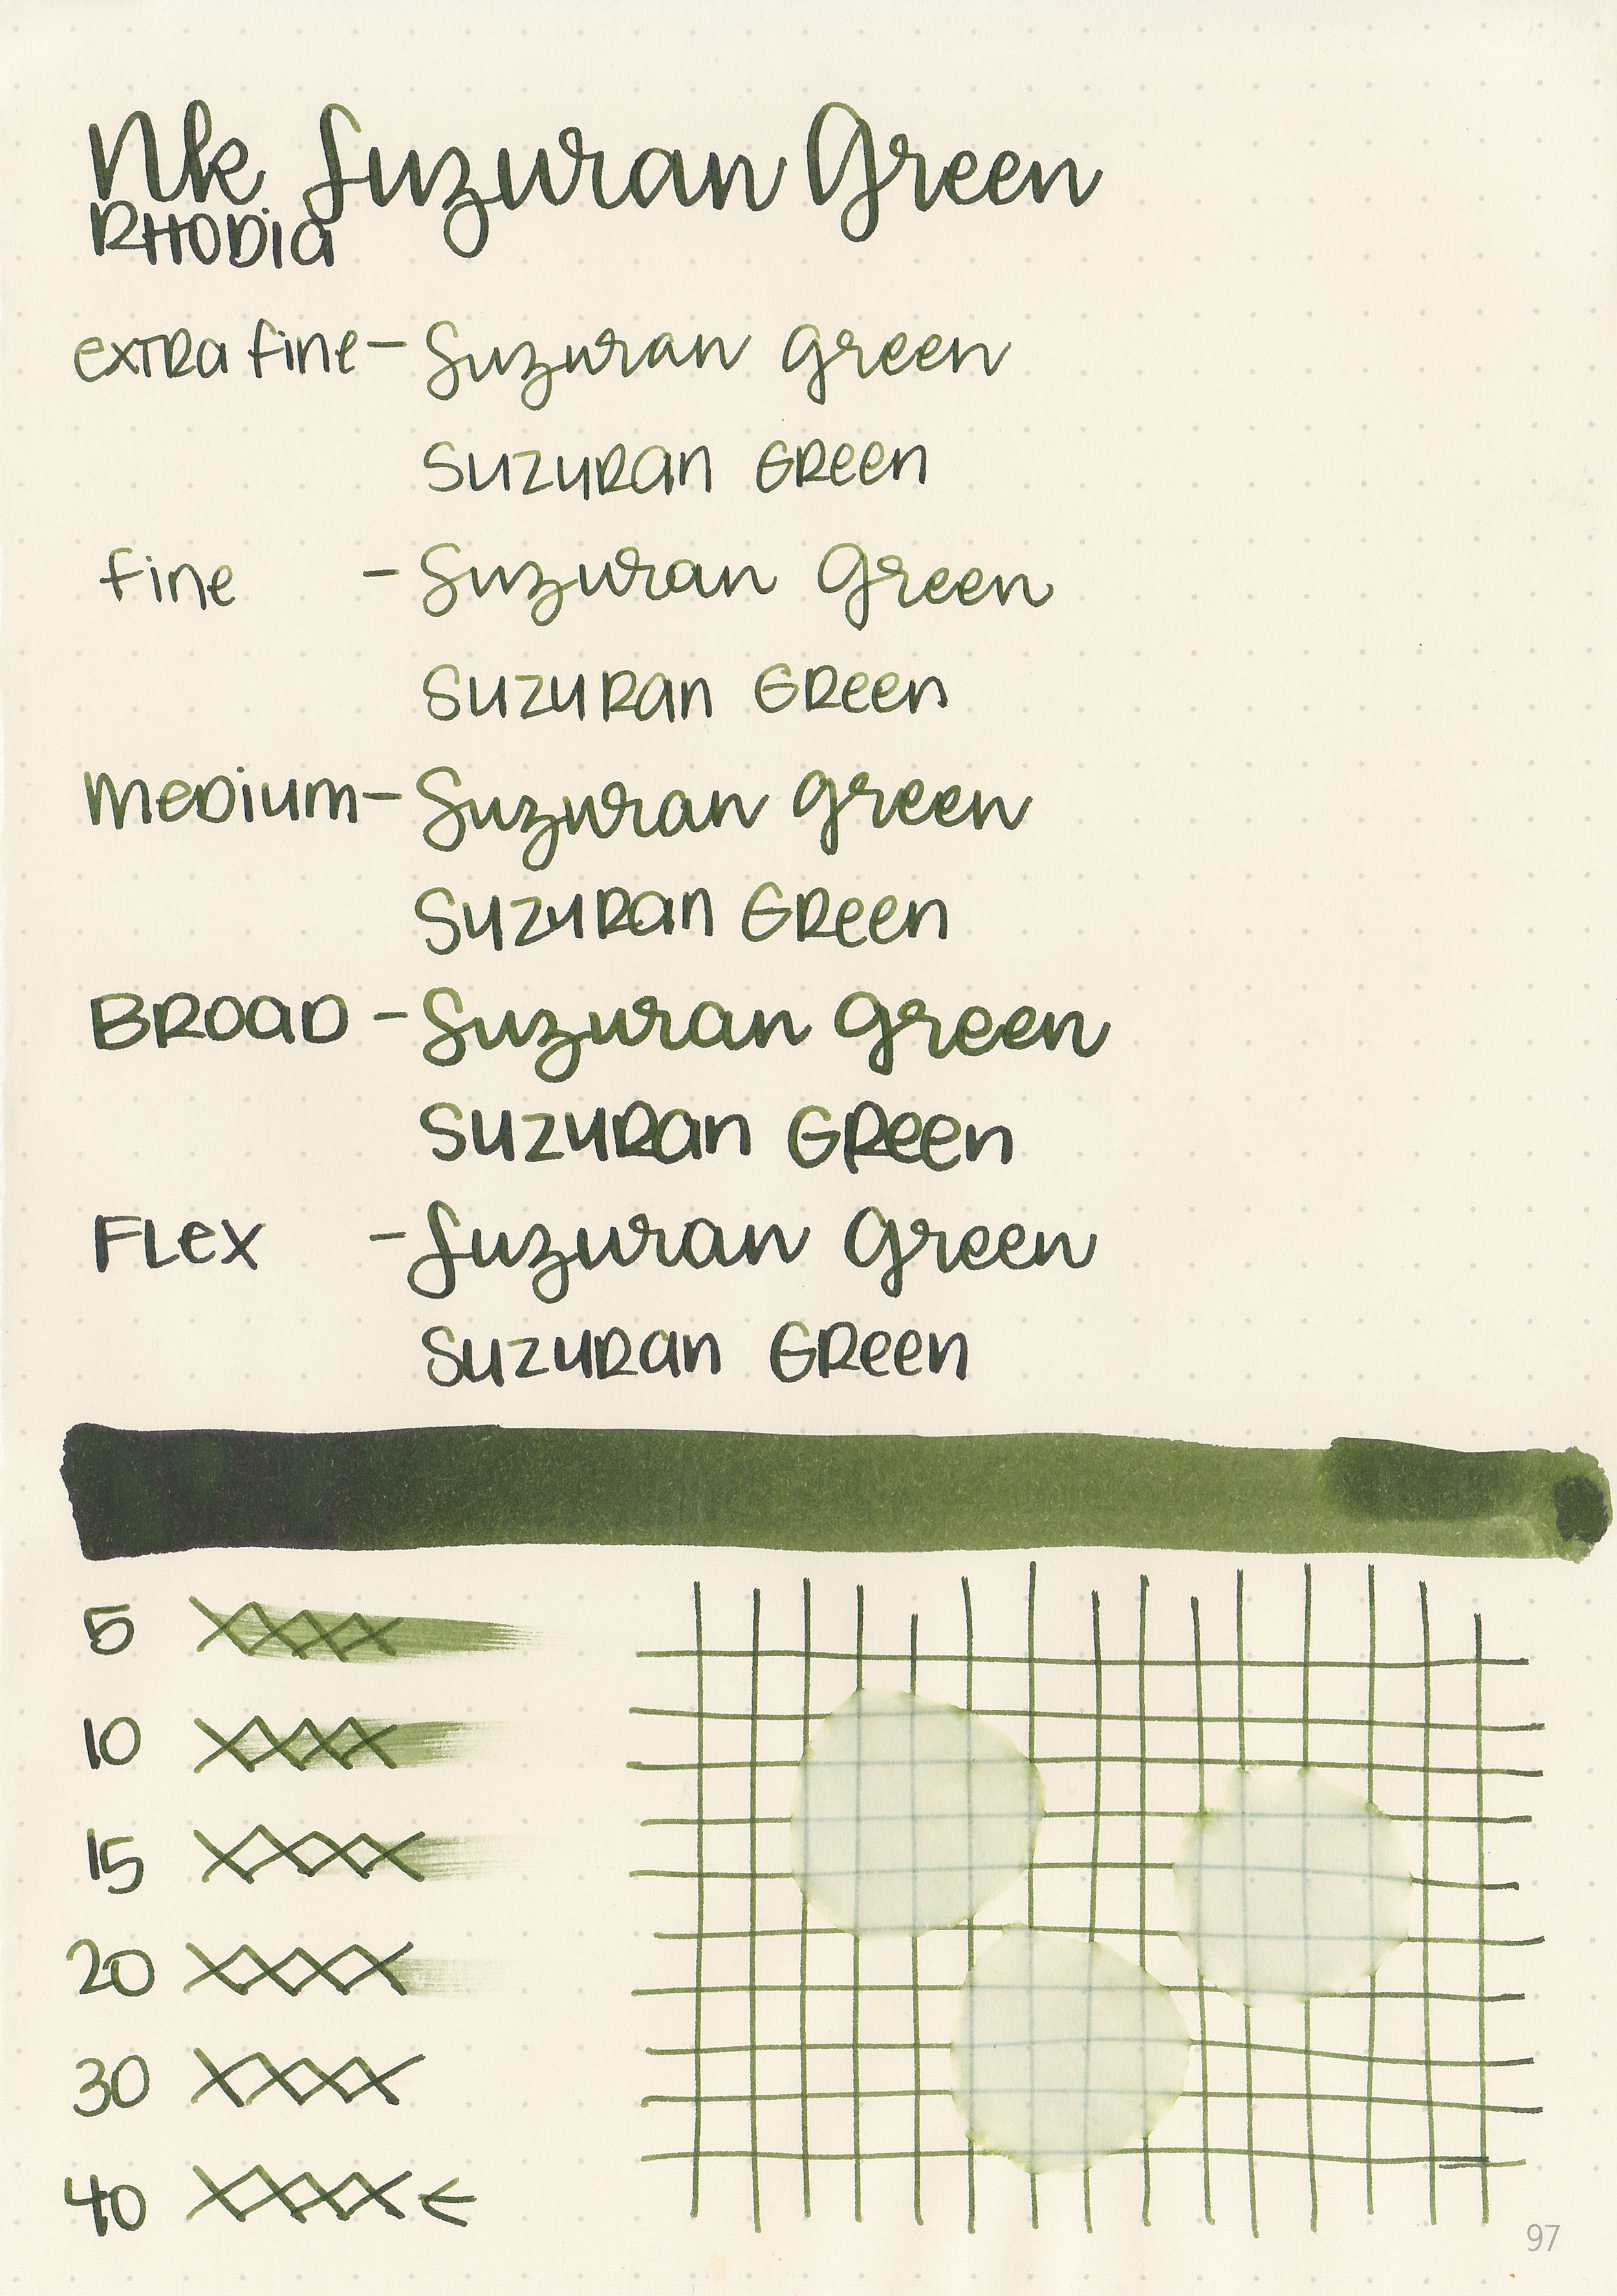 Nk Suzuran Green
RHODia
exTRa fine - Suzuran green
SuzuRan GReen
fine - Suzuran Green
SuzuRan GReen
MeDium - Suzuran green
SuzuRan GReen
BROaD - Suzuran green
SuzuRan GReen
FLex - Suzuran Green
SuzuRan GReen
5 XXXX
10 XXXX
15 XXXX
20 XXXX
30 XXXX
40 XXXX ←
97